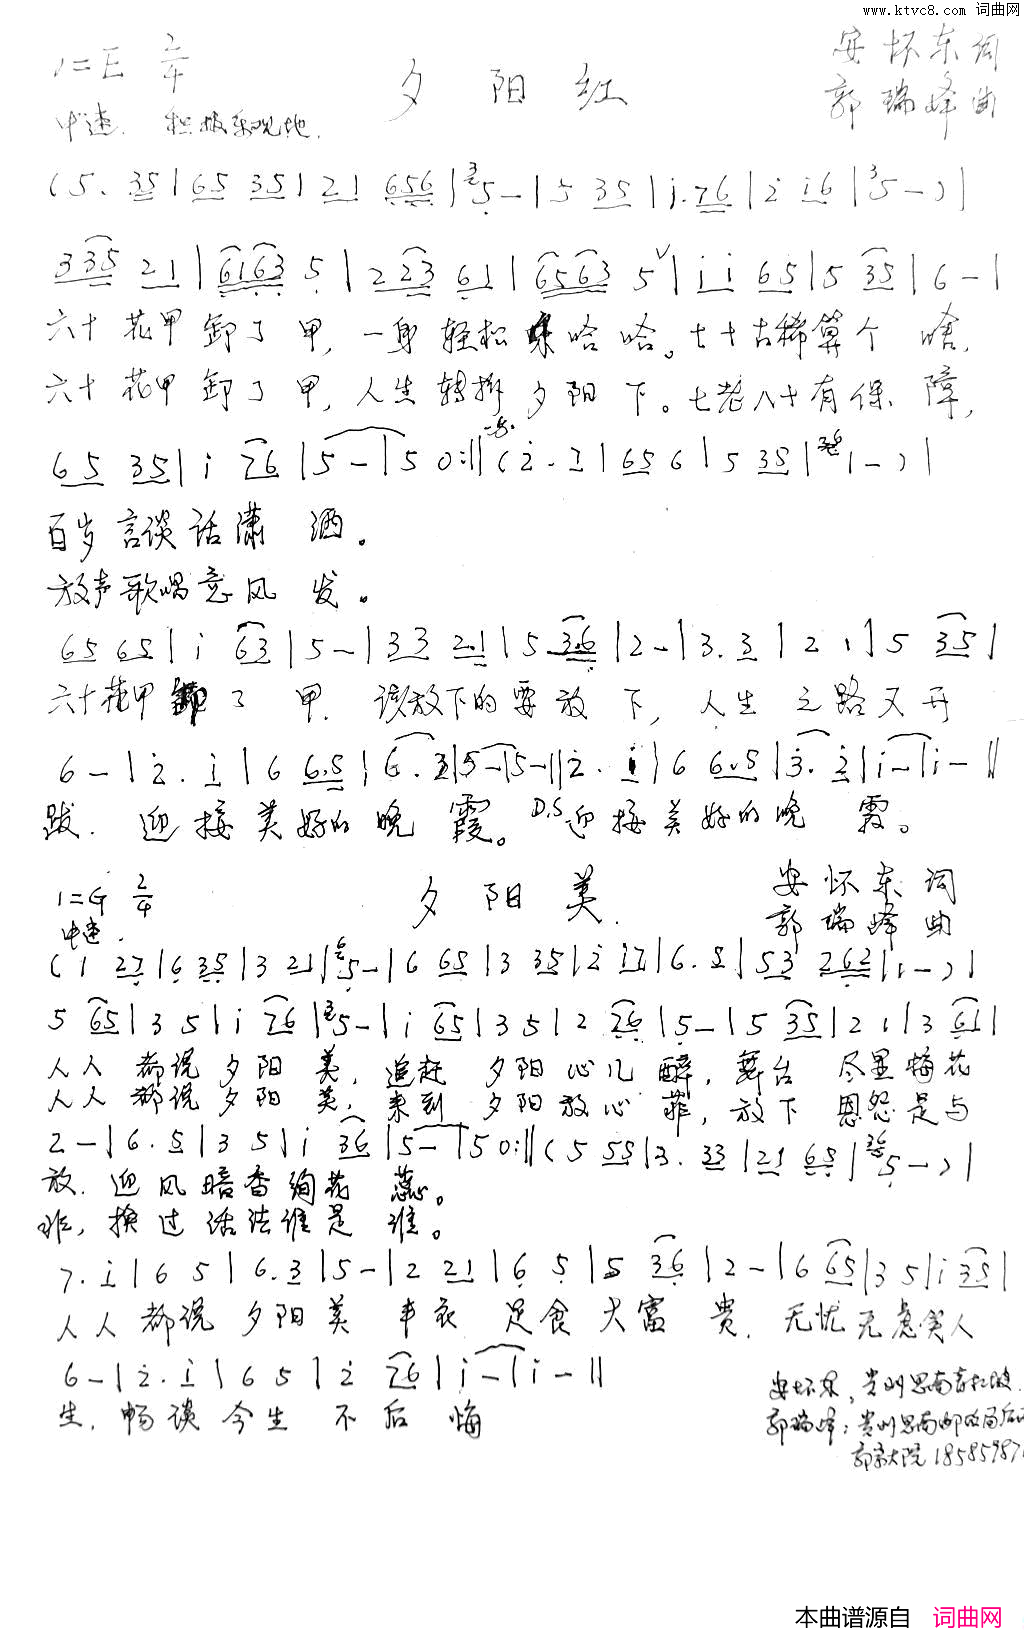 www.ktvc8.com 词曲网
1=E 2/4 夕阳红 安怀东词
中速. 积极乐观地. 郭瑞峰曲
(5. 35|65 35|21 656|5-|5 35|i.76|2 i6|5-)|
335 21|6163 5|223 61|6563 5|ii 65|5 35|6-|
六十花甲卸了甲,一身轻松 哈哈。七十古稀算个啥,
六十花甲卸了甲,人生转折夕阳下。七老八十有保障,
65 35|i 76|5-|5 0:‖(2.1|656|5 35|1-)|
百岁言谈话潇洒。
放声歌唱意风发。
65 65|i 63|5-|33 2.1|5 3.6|2-|3.3|21|5 35|
六十花甲卸了甲.该放下的要放下,人生之路又开
6-|2.i|6 6.5|6.3|5-|5-‖2.i|6 6.5|3.2|i-|i-‖
跋.迎接美好的晚霞。D.S迎接美好的晚霞。
1=G 2/4 夕阳美. 安怀东词
中速. 郭瑞峰曲
(1 27|6 35|3 21|5-|6 65|3 35|2 i7|6.5|53 262|1-)|
5 65|3 5|i 76|5-|i 65|35|2 26|5-|5 35|21|3 61|
人人都说夕阳美,追赶夕阳心儿醉,舞台尽是梅花
人人都说夕阳美,来到夕阳放心菲,放下恩怨是与
2-|6.5|3 5|i 36|5-|50:‖(5 55|3.33|21 65|5-)|
放.迎风暗香绚花蕊。
非,换过活法谁是谁。
7.i|6 5|6.3|5-|2 21|6 5|5 36|2-|6 65|35|i 35|
人人都说夕阳美丰衣足食大富贵.无忧无虑笑人
6-|2.i|6 5|2 76|i-|i-‖
生.畅谈今生不后悔
安怀东,贵州思南
郭瑞峰:贵州思南邮政局后
郭家大院18585987
本曲谱源自 词曲网